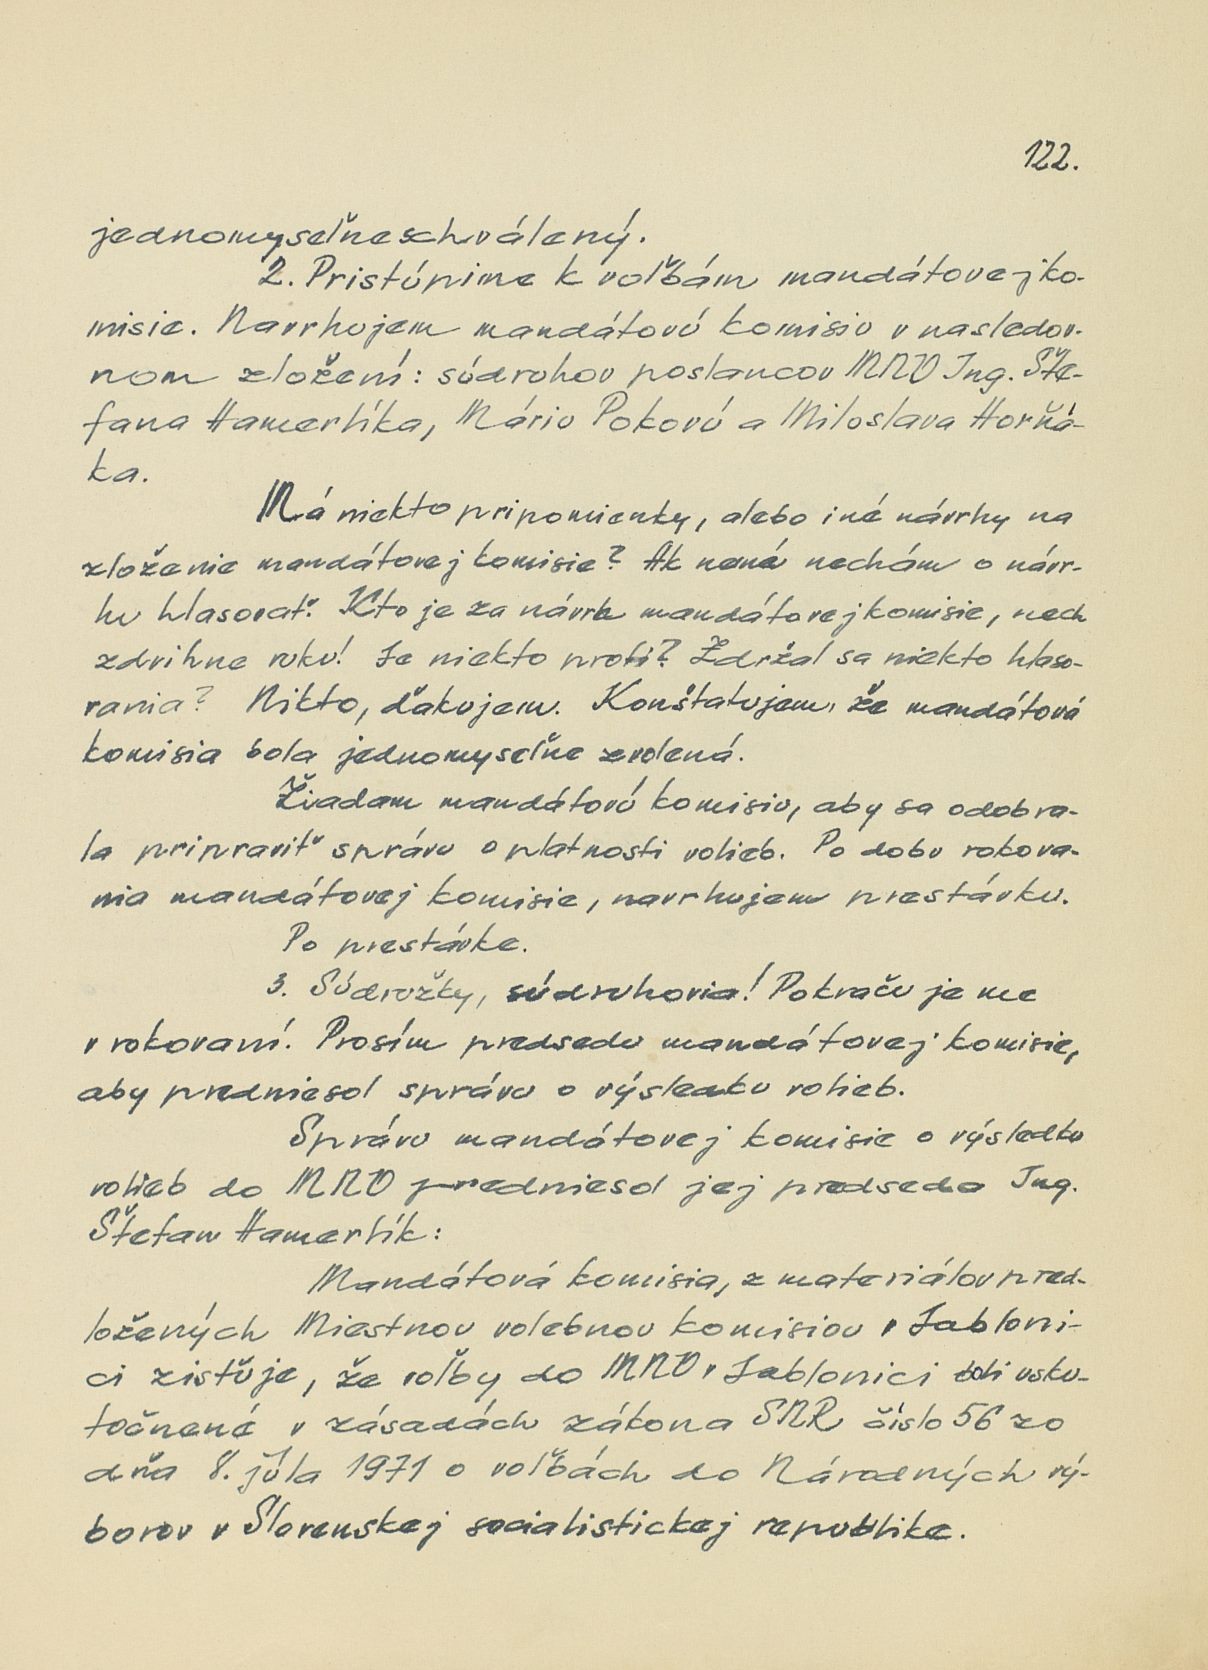 122.
jednomyseľne schválený.
2. Pristúpime k voľbám mandátovej ko-
misie. Navrhujem mandátovú komisiu v nasledov-
nom zložení: súdruhov poslancov MNV Ing. Šte-
fana Hamerlíka, Máriu Pokovú a Miloslava Horňá-
ka.
Má niekto pripomienky, alebo iné návrhy na
zloženie mandátovej komisie? Ak nemá nechám o návr-
hu hlasovať. Kto je za návrh mandátovej komisie, nech
zdvihne ruku! Je niekto proti? Zdržal sa niekto hlaso-
vania? Nikto, ďakujem. Konštatujem, že mandátová
komisia bola jednomyseľne zvolená.
Žiadam mandátovú komisiu, aby sa odobra-
la pripraviť správu o platnosti volieb. Po dobu rokova-
nia mandátovej komisie, navrhujem prestávku.
Po prestávke.
3. Súdružky, súdruhovia! Pokračujeme
v rokovaní. Prosím predsedu mandátovej komisie,
aby predniesol správu o výsledku volieb.
Správu mandátovej komisie o výsledku
volieb do MNV predniesol jej predseda Ing.
Štefan Hamerlík:
Mandátová komisia, z materiálov pred-
ložených Miestnou volebnou komisiou v Jabloni-
ci zisťuje, že voľby do MNV v Jablonici boli usku-
točnené v zásadách zákona SNR číslo 56 zo
dňa 8. júla 1971 o voľbách do Národných vý-
borov v Slovenskej socialistickej republike.